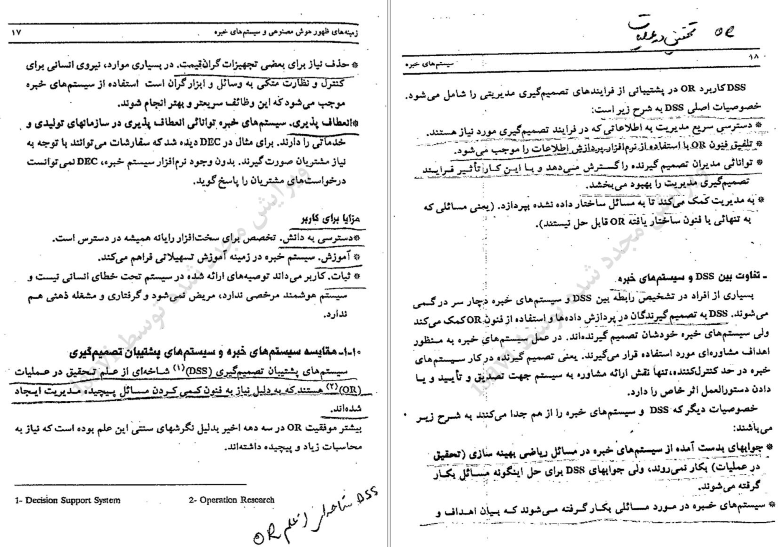 زمینه‌های ظهور هوش مصنوعی و سیستم‌های خبره
۱۷
* حذف نیاز برای بعضی تجهیزات گران‌قیمت. در بسیاری موارد، نیروی انسانی برای
کنترل و نظارت متکی به وسائل و ابزار گران است استفاده از سیستم‌های خبره
موجب می‌شود که این وظائف سریعتر و بهتر انجام شوند.
*انعطاف پذیری. سیستم‌های خبره توانائی انعطاف پذیری در سازمانهای تولیدی و
خدماتی را دارند. برای مثال در DEC دیده شد که سفارشات می‌توانند با توجه به
نیاز مشتریان صورت گیرند. بدون وجود نرم‌افزار سیستم خبره، DEC نمی‌توانست
درخواست‌های مشتریان را پاسخ گوید.
مزایا برای کاربر
*دسترسی به دانش. تخصص برای سخت‌افزار رایانه همیشه در دسترس است.
* آموزش. سیستم خبره در زمینه آموزش تسهیلاتی فراهم می‌کند.
* ثبات. کاربر می‌داند توصیه‌های ارائه شده در سیستم تحت خطای انسانی نیست و
سیستم هوشمند مرخصی ندارد، مریض نمی‌شود و گرفتاری و مشغله ذهنی هم
ندارد.
۱-۱۰- مقایسه سیستم‌های خبره و سیستم‌های پشتیبان تصمیم‌گیری
سیستم‌های پشتیبان تصمیم‌گیری (DSS)(۱) شاخه‌ای از علم تحقیق در عملیات
(OR)(۲) هستند که به دلیل نیاز به فنون کمی کردن مسائل پیچیده مدیریت ایجاد
شده‌اند.
بیشتر موفقیت OR در سه دهه اخیر بدلیل نگرشهای سنتی این علم بوده است که نیاز به
محاسبات زیاد و پیچیده داشته‌اند.
1- Decision Support System 2- Operation Research
DSS شاخه‌ای از علم OR
OR تحقیق در عملیات
۱۸
سیستم‌های خبره
DSS کاربرد OR در پشتیبانی از فرایندهای تصمیم‌گیری مدیریتی را شامل می‌شود.
خصوصیات اصلی DSS به شرح زیر است:
* دسترسی سریع مدیریت به اطلاعاتی که در فرایند تصمیم‌گیری مورد نیاز هستند.
* تلفیق فنون OR با استفاده از نرم‌افزار پردازش اطلاعات را موجب می‌شود.
* توانائی مدیران تصمیم گیرنده را گسترش می‌دهد و با این کار تأثیر فرایند
تصمیم‌گیری مدیریت را بهبود می‌بخشد.
* به مدیریت کمک می‌کند تا به مسائل ساختار داده نشده بپردازد. (یعنی مسائلی که
به تنهائی با فنون ساختار یافته OR قابل حل نیستند).
- تفاوت بین DSS و سیستم‌های خبره
بسیاری از افراد در تشخیص رابطه بین DSS و سیستم‌های خبره دچار سر در گمی
می‌شوند. DSS به تصمیم‌گیرندگان در پردازش داده‌ها و استفاده از فنون OR کمک می‌کند
ولی سیستم‌های خبره خودشان تصمیم گیرنده‌اند. در عمل سیستم‌های خبره به منظور
اهداف مشاوره‌ای مورد استفاده قرار می‌گیرند. یعنی تصمیم گیرنده در کار سیستم‌های
خبره در حد کنترل‌کننده، تنها نقش ارائه مشاوره به سیستم جهت تصدیق و تأیید و یا
دادن دستورالعمل اثر خاص را دارد.
خصوصیات دیگر که DSS و سیستم‌های خبره را از هم جدا می‌کنند به شرح زیر
می‌باشند:
* جوابهای بدست آمده از سیستم‌های خبره در مسائل ریاضی بهینه سازی (تحقیق
در عملیات) بکار نمی‌روند، ولی جوابهای DSS برای حل اینگونه مسائل بکار
گرفته می‌شوند.
* سیستم‌های خبره در مورد مسائلی بکار گرفته می‌شوند که بیان اهداف و